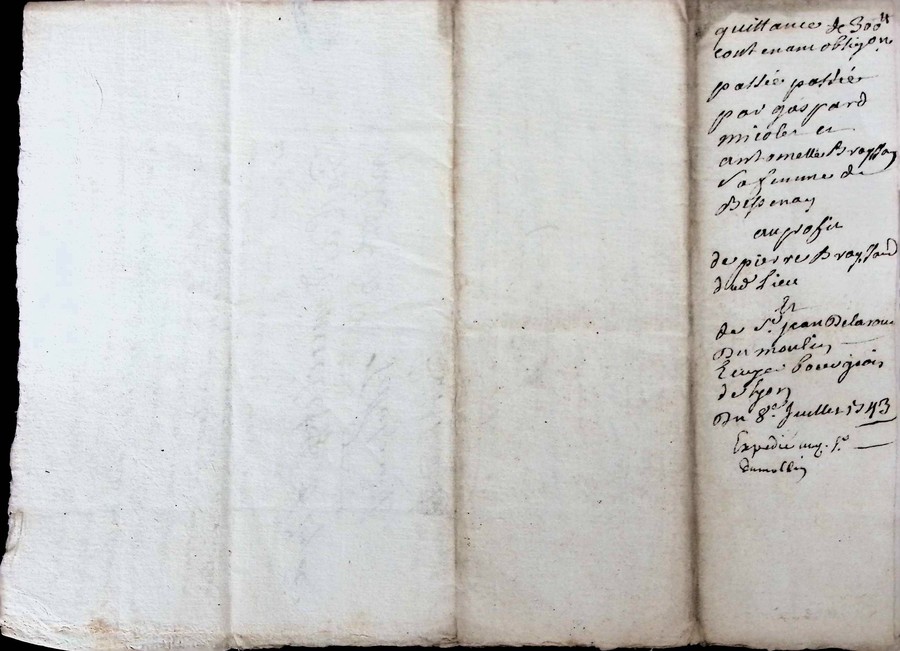 quittance de 300ᵗᵗ
contenant obligon
passée passée
par gaspard
micolet et
anthomette Brossar
Sa femme de
Bessenay
au profit
de pierre Brossard
dud lieu
Et
de Sr. jean Delaroue
Du moulin
bourgeois
de Lyon
Du 8e. Juillet 1743
Expedié aud. Sr.
Dumollin